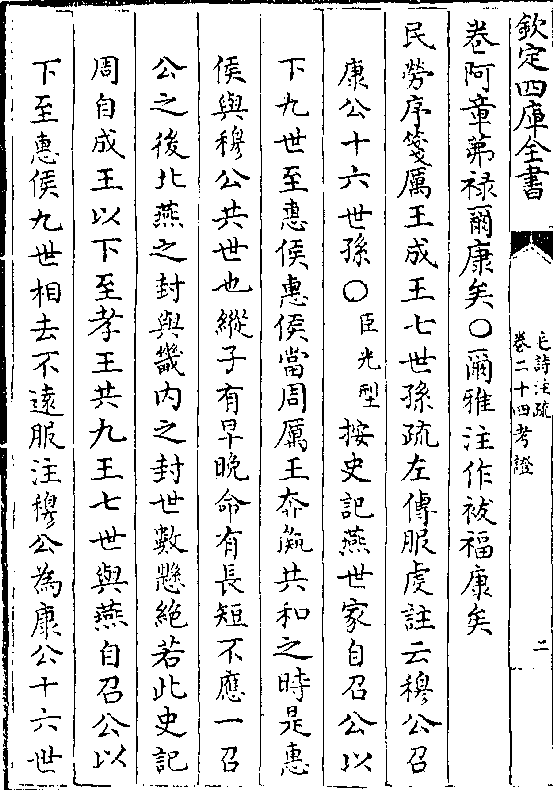 欽定四庫全書
毛詩注疏
卷二十四考證
二
卷阿章茀祿爾康矣〇爾雅注作祓福康矣
民勞序箋厲王成王七世孫疏左傳服虔註云穆公召
康公十六世孫〇臣光型按史記燕世家自召公以
下九世至惠侯惠侯當周厲王奔彘共和之時是惠
侯與穆公共世也縱子有早晚命有長短不應一召
公之後北燕之封與畿內之封世數懸絕若此史記
周自成王以下至孝王共九王七世與燕自召公以
下至惠侯九世相去不遠服注穆公為康公十六世